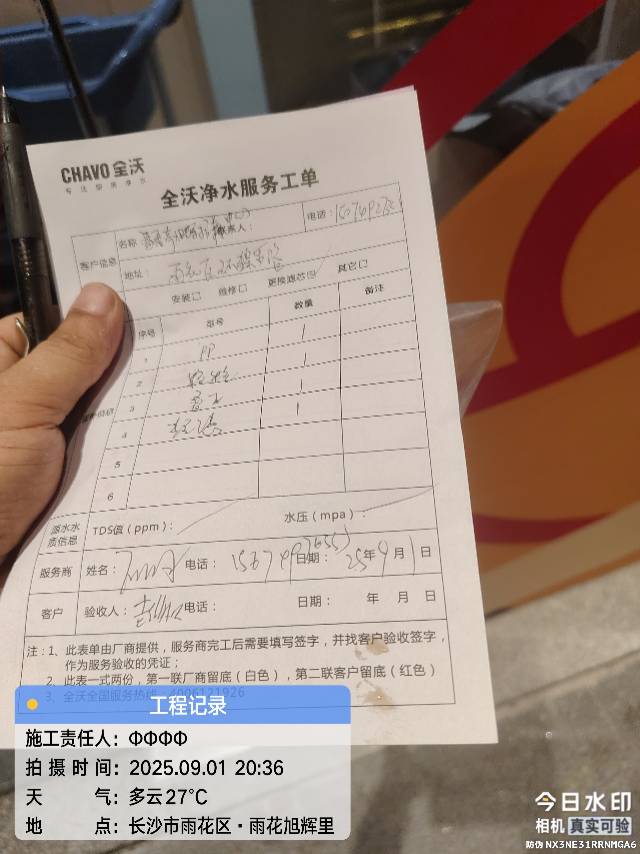 CHAVO 全沃
专注厨房净水
全沃净水服务工单
客户信息
名称
联系人：
电话：
地址：
安装口 维修口 更换滤芯 其它口
序号 型号 数量 备注
1 PP 1
2 1
3 1
4 1
5
6
源水水质信息
TDS值（ppm）： 水压（mpa）：
服务商 姓名： 电话： 日期： 25年9月1日
客户 验收人： 电话： 日期： 年 月 日
注：1、此表单由厂商提供，服务商完工后需要填写签字，并找客户验收签字，
作为服务验收的凭证；
2、此表一式两份，第一联厂商留底（白色），第二联客户留底（红色）
3、全沃全国服务热线：4006121926
工程记录
施工责任人：ФФФФ
拍摄时间：2025.09.01 20:36
天 气：多云27℃
地 点：长沙市雨花区·雨花旭辉里
今日水印
相机 真实可验
防伪 NX3NE31RRNMGA6